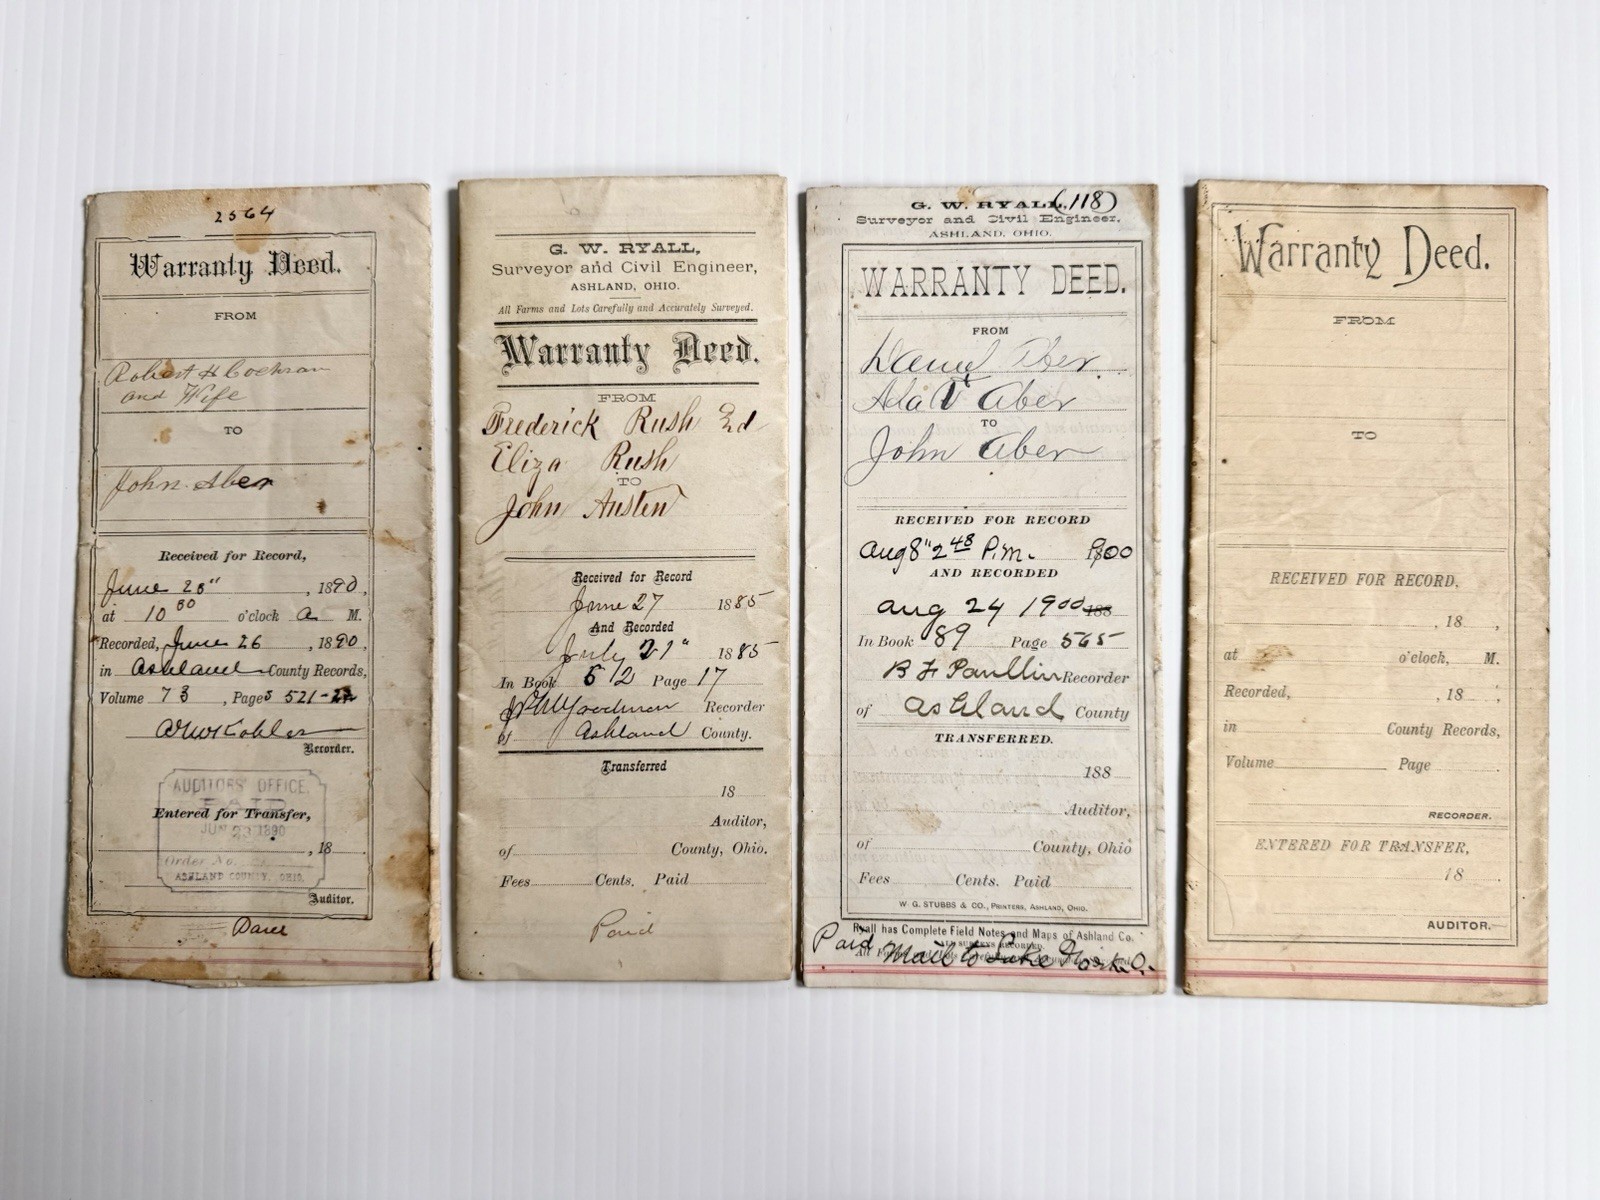 2564
Warranty Deed.
FROM
Robert H Cochran
and Wife
TO
John Aber
Received for Record,
June 26", 1890,
at 10 00 o'clock A M.
Recorded, June 26, 1890,
in Ashland County Records,
Volume 73, Pages 521-22
Recorder.
AUDITORS' OFFICE,
PAID
Entered for Transfer,
JUN 23 1890
, 18
Order No.
ASHLAND COUNTY, OHIO.
Auditor.
G. W. RYALL,
Surveyor and Civil Engineer,
ASHLAND, OHIO.
All Farms and Lots Carefully and Accurately Surveyed.
Warranty Deed.
FROM
Frederick Rush 2d
Eliza Rush
TO
John Austen
Received for Record
June 27 1885
And Recorded
July 21" 1885
In Book 52 Page 17
Recorder
of Ashland County.
Transferred
18
Auditor,
of County, Ohio.
Fees Cents. Paid
Paid
G. W. RYALL, (118)
Surveyor and Civil Engineer.
ASHLAND, OHIO.
WARRANTY DEED.
FROM
David Aber.
Ada V Aber
TO
John Aber
RECEIVED FOR RECORD
Aug 8" 2 48 P.M. 1900
AND RECORDED
Aug 24 1900 188
In Book 89 Page 565
B F Paullin Recorder
of Ashland County
TRANSFERRED.
188
Auditor,
of County, Ohio
Fees Cents. Paid
W. G. STUBBS & CO., PRINTERS, ASHLAND, OHIO.
Ryall has Complete Field Notes and Maps of Ashland Co.
ALL SURVEYS RECORDED.
Paid Mail to Lake Fork O.
Warranty Deed.
FROM
TO
RECEIVED FOR RECORD.
, 18 ,
at o'clock, M.
Recorded, , 18 ,
in County Records,
Volume Page
RECORDER.
ENTERED FOR TRANSFER,
18
AUDITOR.